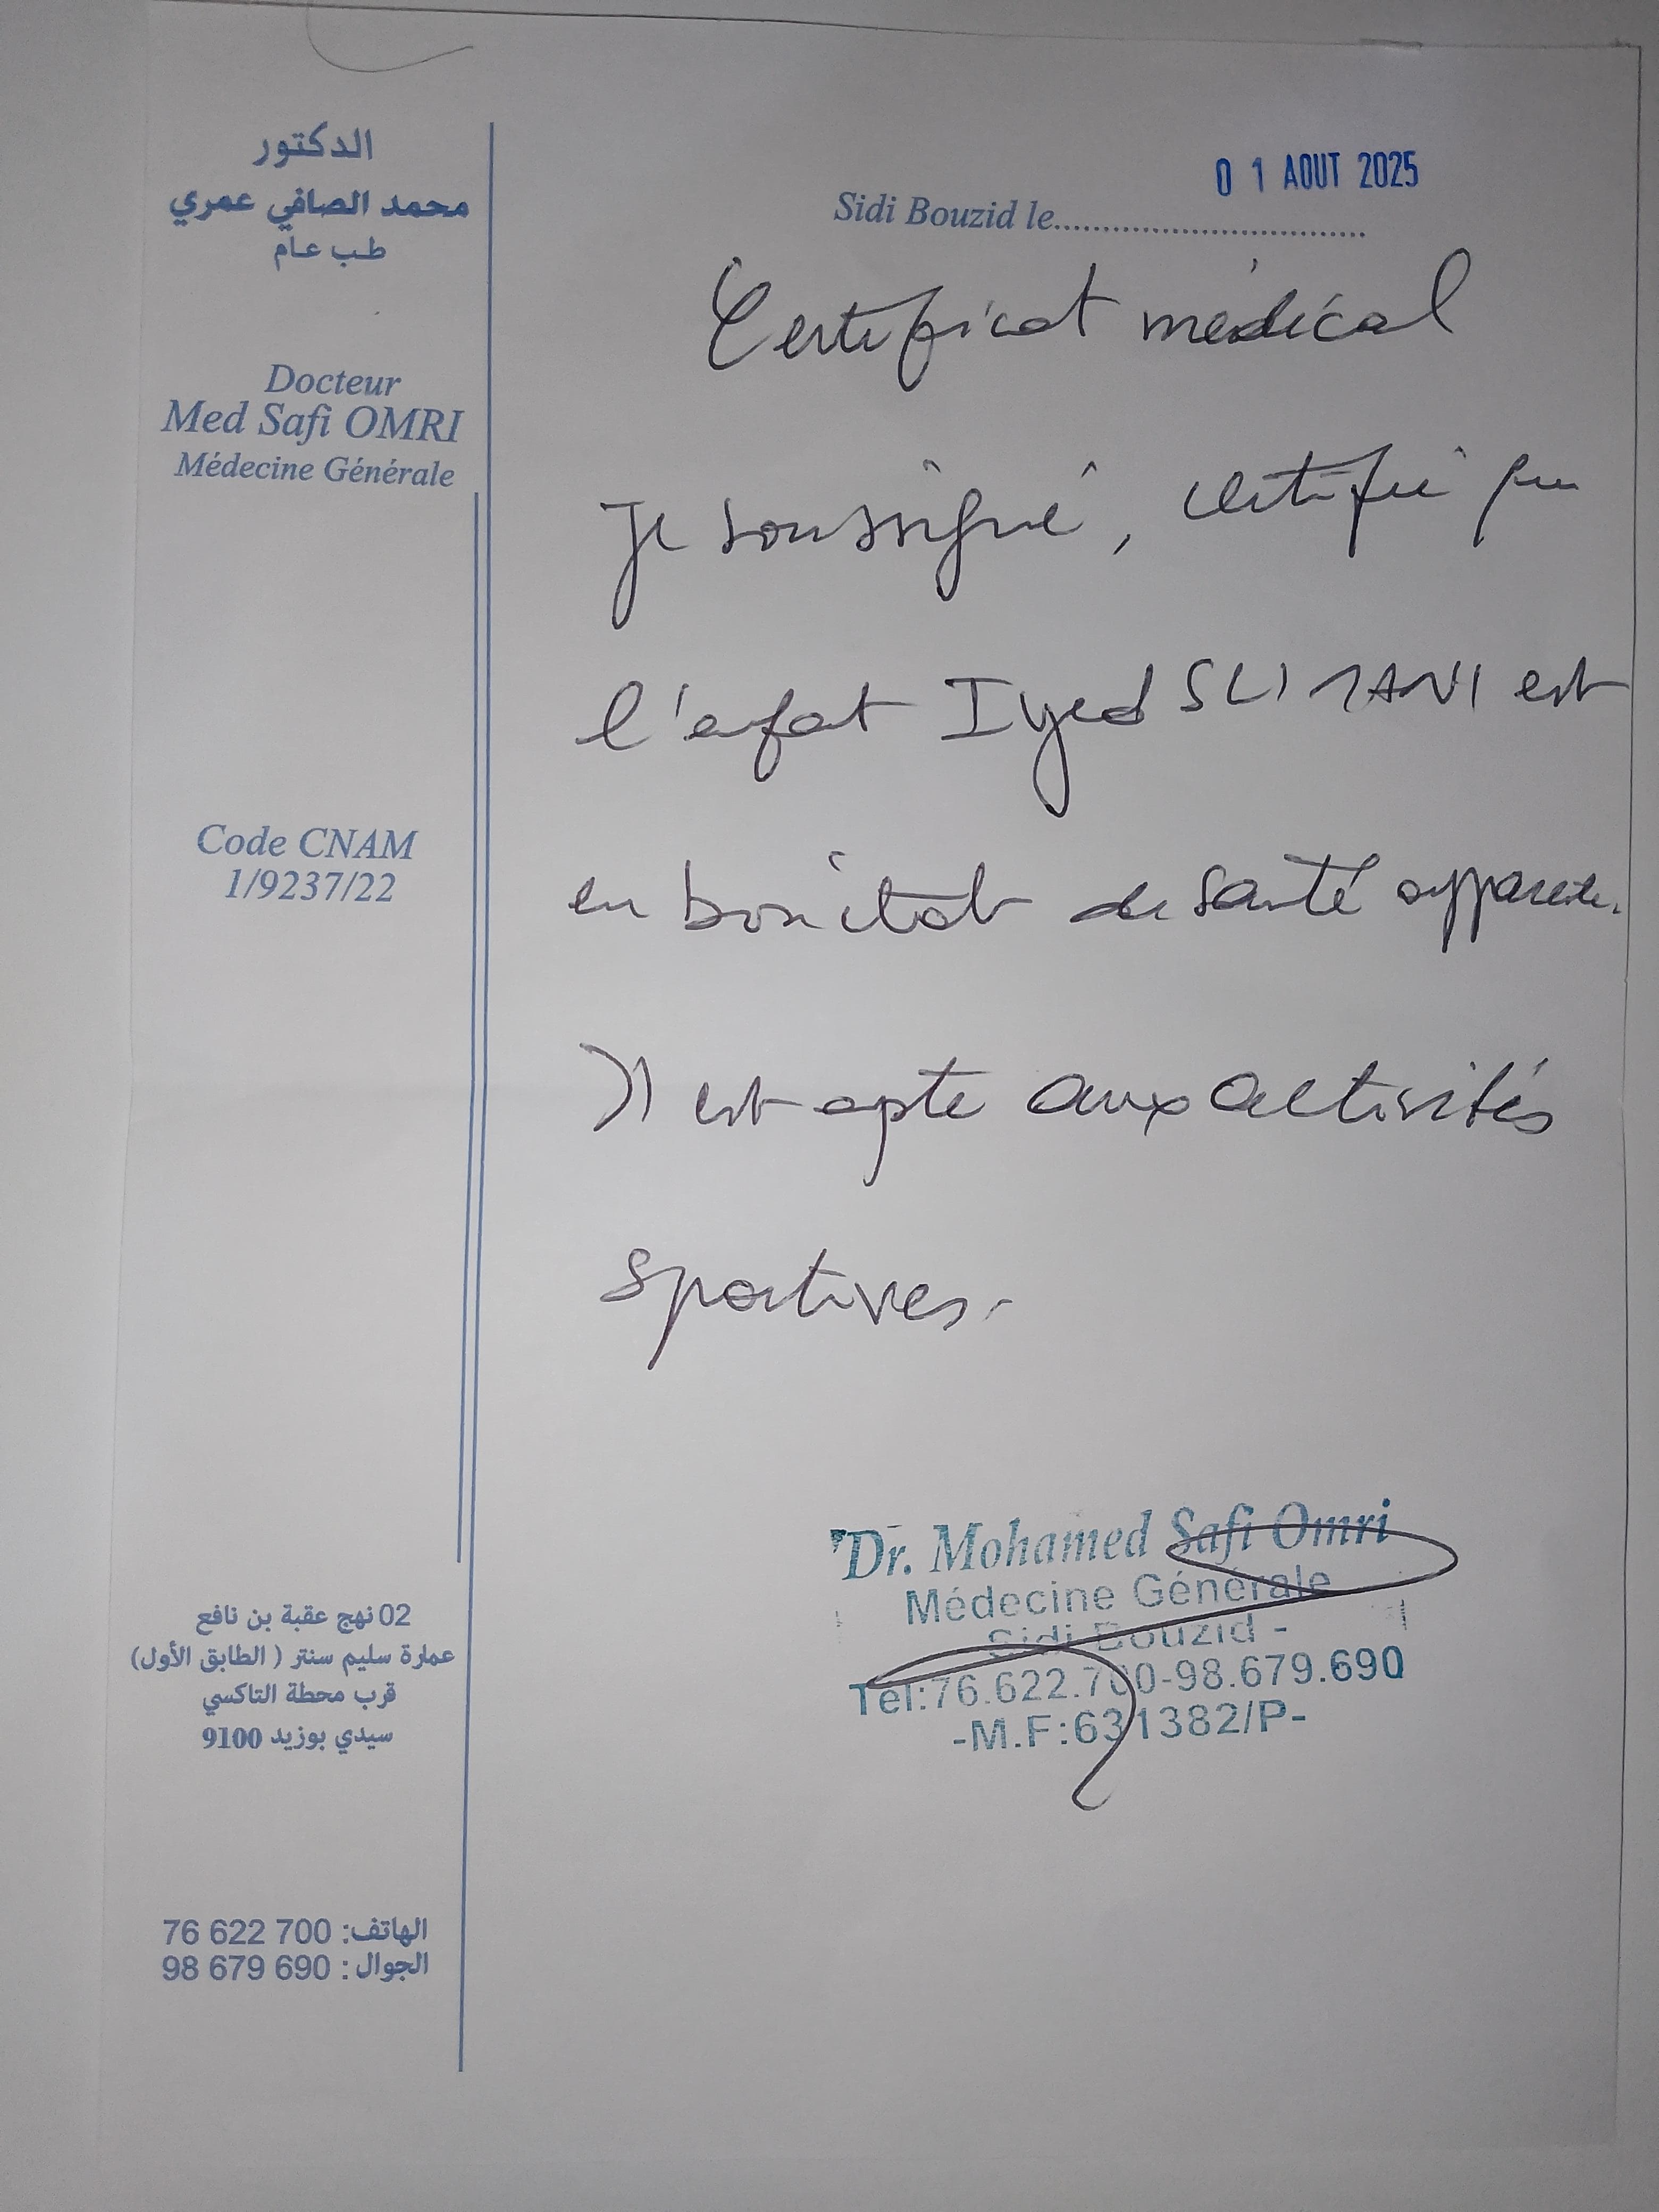 الدكتور
محمد الصافي عمري
طب عام
Docteur
Med Safi OMRI
Médecine Générale
Code CNAM
1/9237/22
02 نهج عقبة بن نافع
عمارة سليم سنتر ( الطابق الأول)
قرب محطة التاكسي
سيدي بوزيد 9100
الهاتف: 76 622 700
الجوال : 98 679 690
0 1 AOUT 2025
Sidi Bouzid le
Certificat médical
Je soussigné, certifie que
l'enfant Iyed SLIMANI est
en bon état de santé apparente.
Il est apte aux activités
sportives.
Dr. Mohamed Safi Omri
Médecine Générale
Sidi Bouzid -
Tel:76.622.700-98.679.690
-M.F:631382/P-